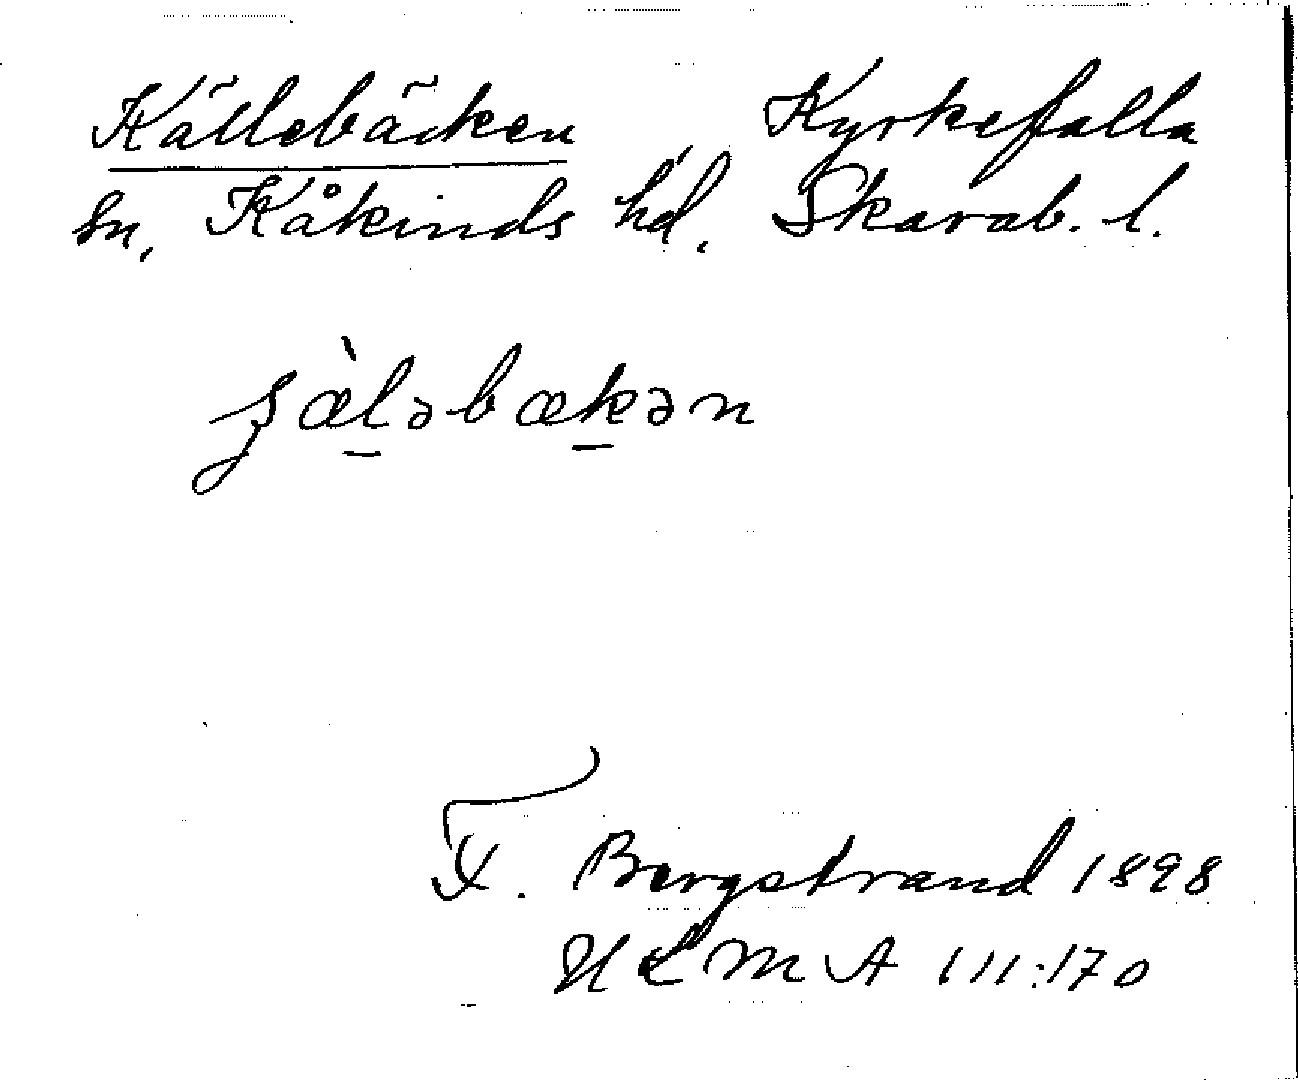 Källebäcken Kyrkefalla
sn, Kåkinds hd, Skarab. l.
ʂæ̀l̠əbæk̠ən
F. Bergstrand 1898
ULMA 111:170